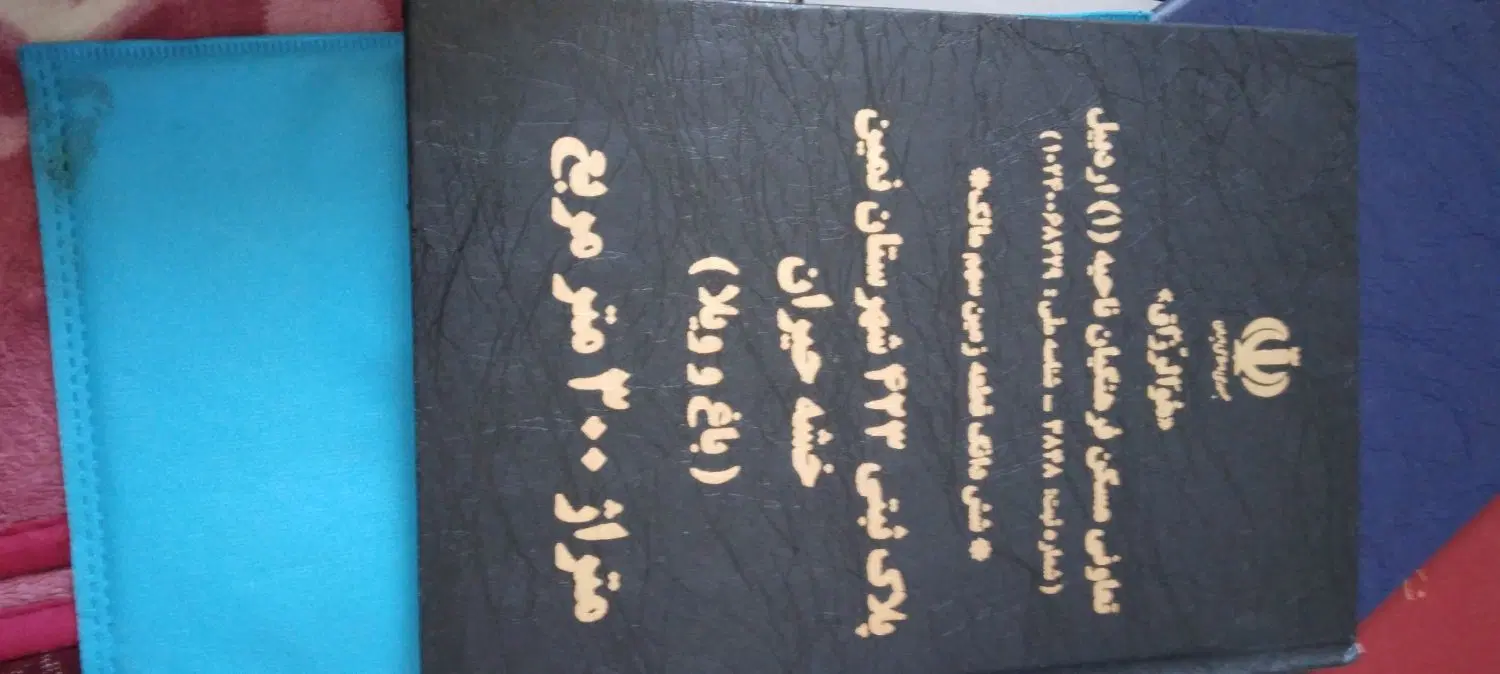 جمهوری اسلامی ایران
«هوالرزاق»
تعاونی مسکن فرهنگیان ناحیه (۱) اردبیل
(شماره ثبت: ۳۸۳۸ – شناسه ملی: ۱۰۲۴۰۰۶۸۳۲۹)
* شش دانگ قطعه زمین سهم مالک*
پلاک ثبتی ۴۲۳۳ شهرستان نمین
خشه حیران
(باغ و ویلا)
متراژ ۳۰۰ متر مربع